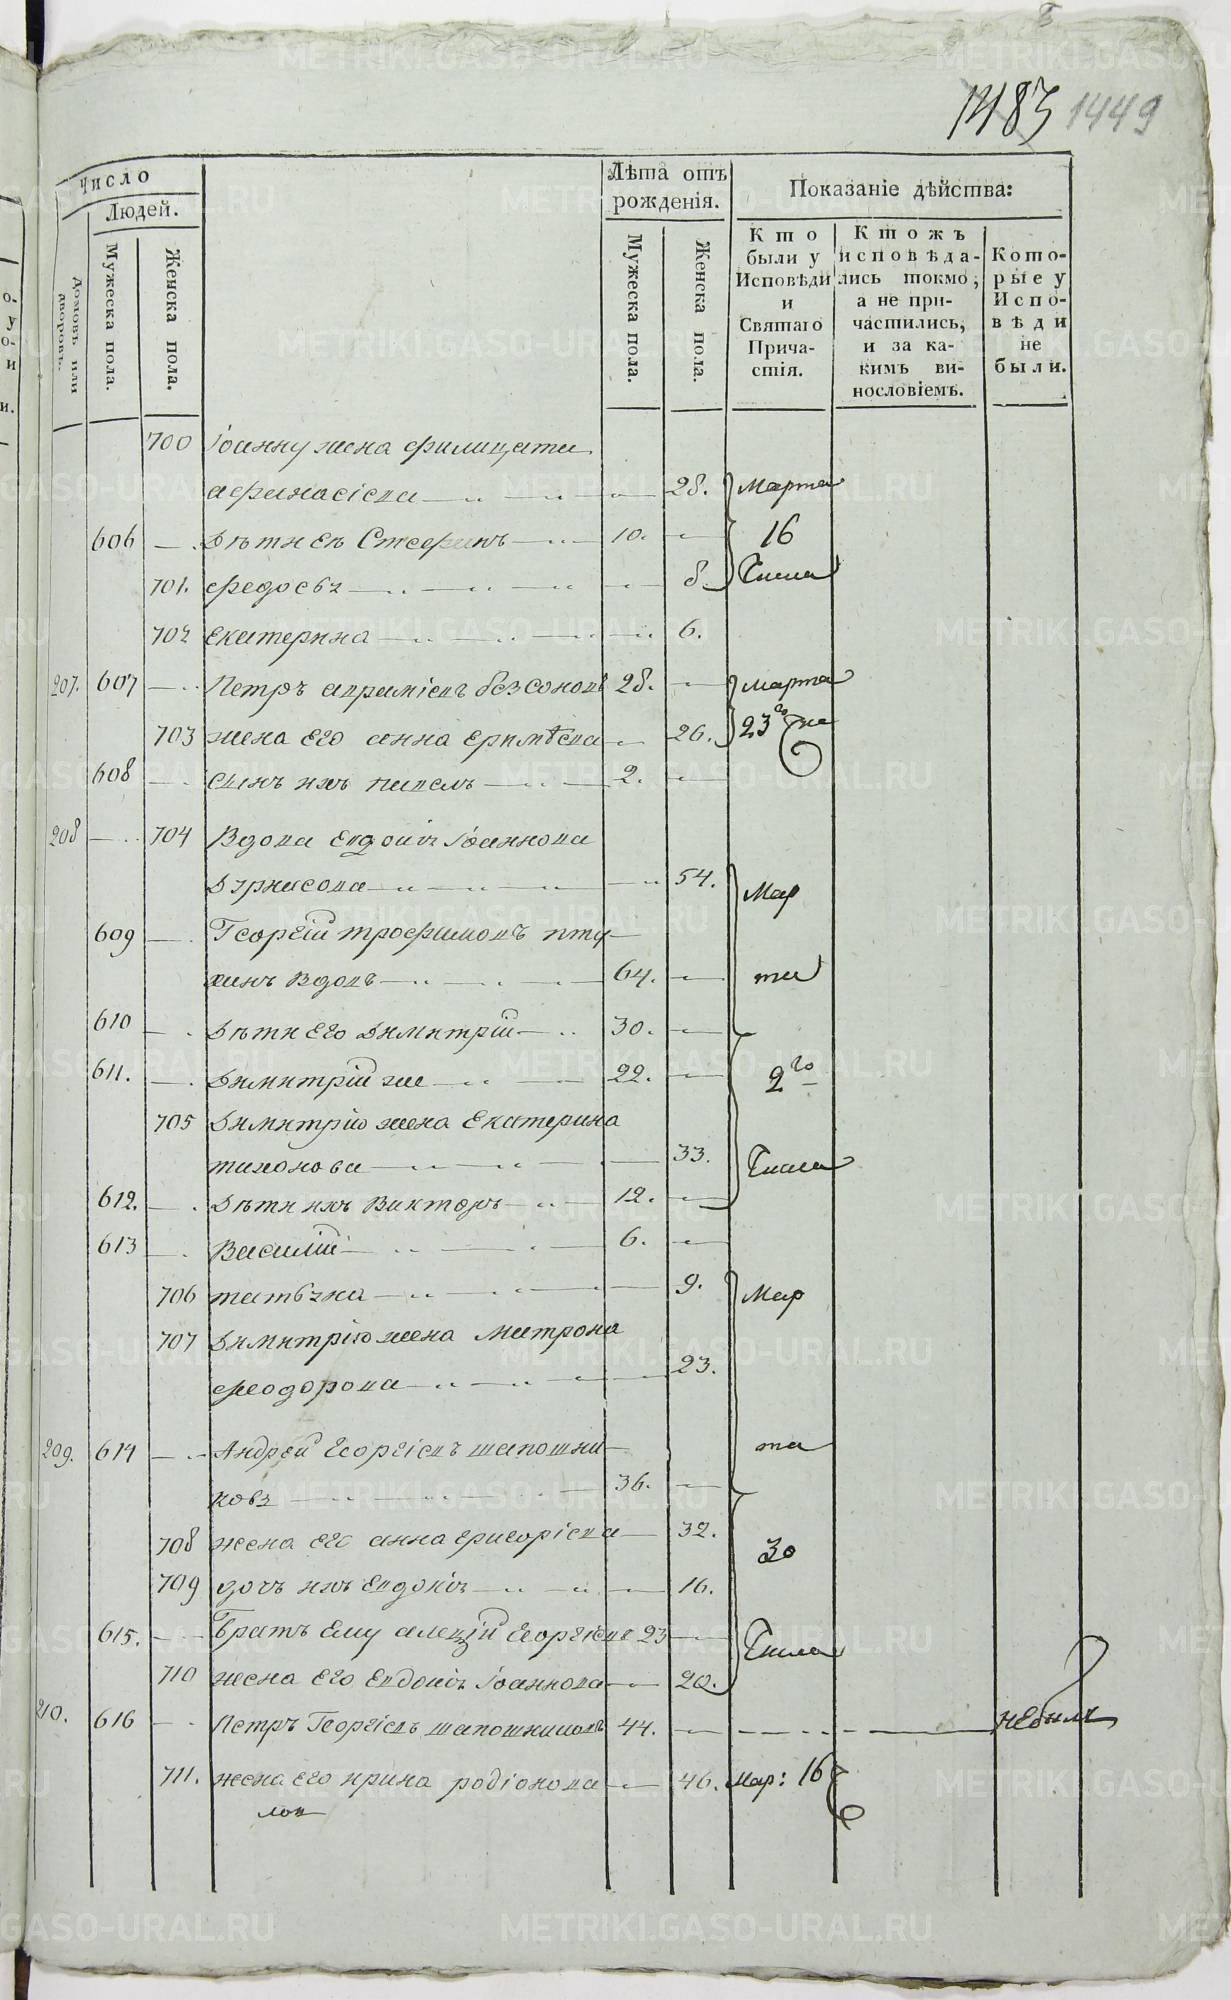 1483 1449
Число
Людей.
Домовъ или дворовъ.
Мужеска пола.
Женска пола.
Лѣта отъ рожденія.
Мужеска пола.
Женска пола.
Показаніе дѣйства:
Кто были у Исповѣди и Святаго Причастія.
Ктожъ исповѣдались токмо, а не причастились, и за какимъ винословіемъ.
Которые у Исповѣди не были.
700 Іоанну жена филицата
афанасіева 28. Марта
606 Дѣти Ея Стефанъ 10. 16
701. федосья 8 Числа
702 Екатерина 6.
207. 607 Петръ авраміевъ безсоновъ 28. Марта
703 жена Его анна Ермѣева 26. 23го
608 сынъ ихъ павелъ 2.
208 704 Вдова Евдокія Іоаннова
Борисова 54. Мар
609 Георгій трофимовъ пту
хинъ Вдовъ 64. та
610 Дѣти Его Димитрій 30.
611. Димитрій же 22. 2го
705 Димитрію жена Екатерина
тихонова 33. Числа
612. Дѣти ихъ Викторъ 12.
613 Василій 6.
706 татьяна 9. Мар
707 Димитрію жена Матрона
феодорова 23.
209. 614 Андрей Георгіевъ шапошни та
ковъ 36.
708 жена Его анна григоріева 32. 30
709 дочь ихъ Евдокія 16.
615. Братъ Ему алексій Георгіевъ 23 Числа
710 жена Его Евдокія Іоаннова 20.
210. 616 Петръ Георгіевъ шапошниковъ 44. небылъ
711. жена Его ирина родіонова 46. Мар: 16